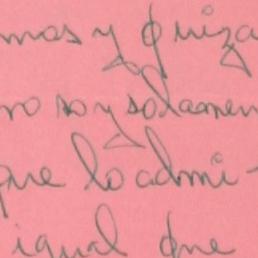 mas y quiza
no soy solamen
que lo admi-
igual que